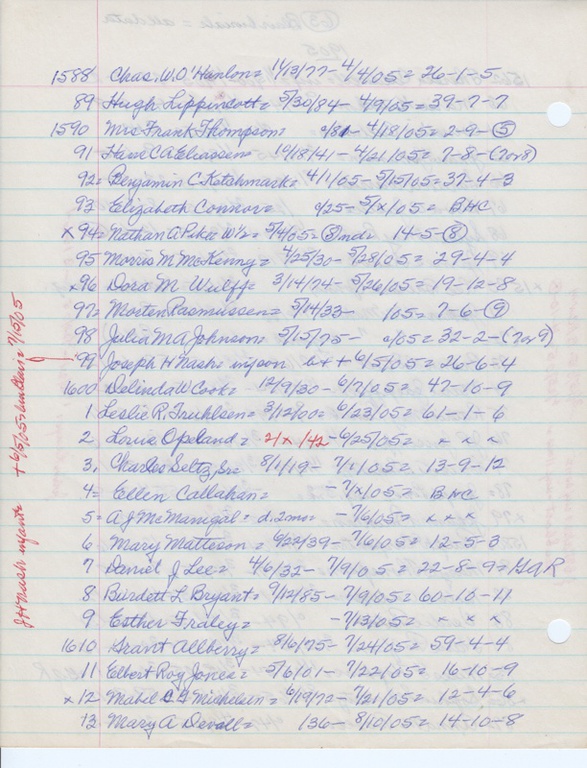 1588 Chas. W. O'Hanlon = 11/13/77 - 4/4/05 = 26-1-5
89 Hugh Lippincott = 5/30/84 - 4/9/05 = 39-7-7
1590 Mrs Frank Thompson = c/81 - 4/18/05 = 2-9-(5)
91 Hans C A Eliassen = 10/18/41 - 4/21/05 = 7-8-(7or8)
92 = Benjamin C Ketchmark = 4/1/05 - 5/15/05 = 37-4-3
93 Elizabeth Connor = c/25 - 5/x/05 = BHC
x 94 = Nathan A Piker = 5/4/05 = (8) mds. 14-5-(8)
95 Morris M McKenny = 4/25/30 - 5/28/05 = 29-4-4
x 96 Dora M Wulff = 3/14/74 - 5/26/05 = 19-12-8
97 = Morten Rasmussen = 5/14/33 - 105 = 7-6-(9)
98 Julia M A Johnson = 5/15/75 - c/05 = 32-2-(7or9)
99 Joseph H Nash = inf son b + + 6/5/05 = 26-6-4
1600 Delinda W Cook = 12/9/30 - 6/7/05 = 47-10-9
1 Leslie R. Truhlsen = 3/12/00 = 6/23/05 = 61-1-6
2 Louie Opeland = 2/x/42 - 6/25/05 = x x x
3, Charles Seltz, Sr = 8/1/19 - 7/1/05 = 13-9-12
4 = Ellen Callahan = - 7/x/05 = BHC
5 = A J McManigal = d. 2mo = - 7/6/05 = x x x
6 Mary Matteson = 9/22/39 - 7/6/05 = 12-5-3
7 Daniel J Lee = 4/6/32 - 7/9/05 = 22-8-9 = GAR
8 Burdett L. Bryant = 9/12/85 - 7/9/05 = 60-10-11
9 Esther Fraley = - 7/13/05 = x x x
1610 Grant Allberry = 8/6/75 - 7/24/05 = 59-4-4
11 Elbert Roy Jones = 5/6/01 - 7/22/05 = 16-10-9
x 12 Mabel C A Mickelsen = 6/19/72 - 7/21/05 = 12-4-6
13 Mary A Devoll = 136 - 8/10/05 = 14-10-8
J H Nash infant + 6/5/05 = 7/15/05